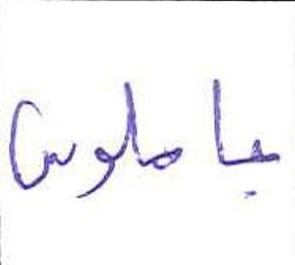 باملوس